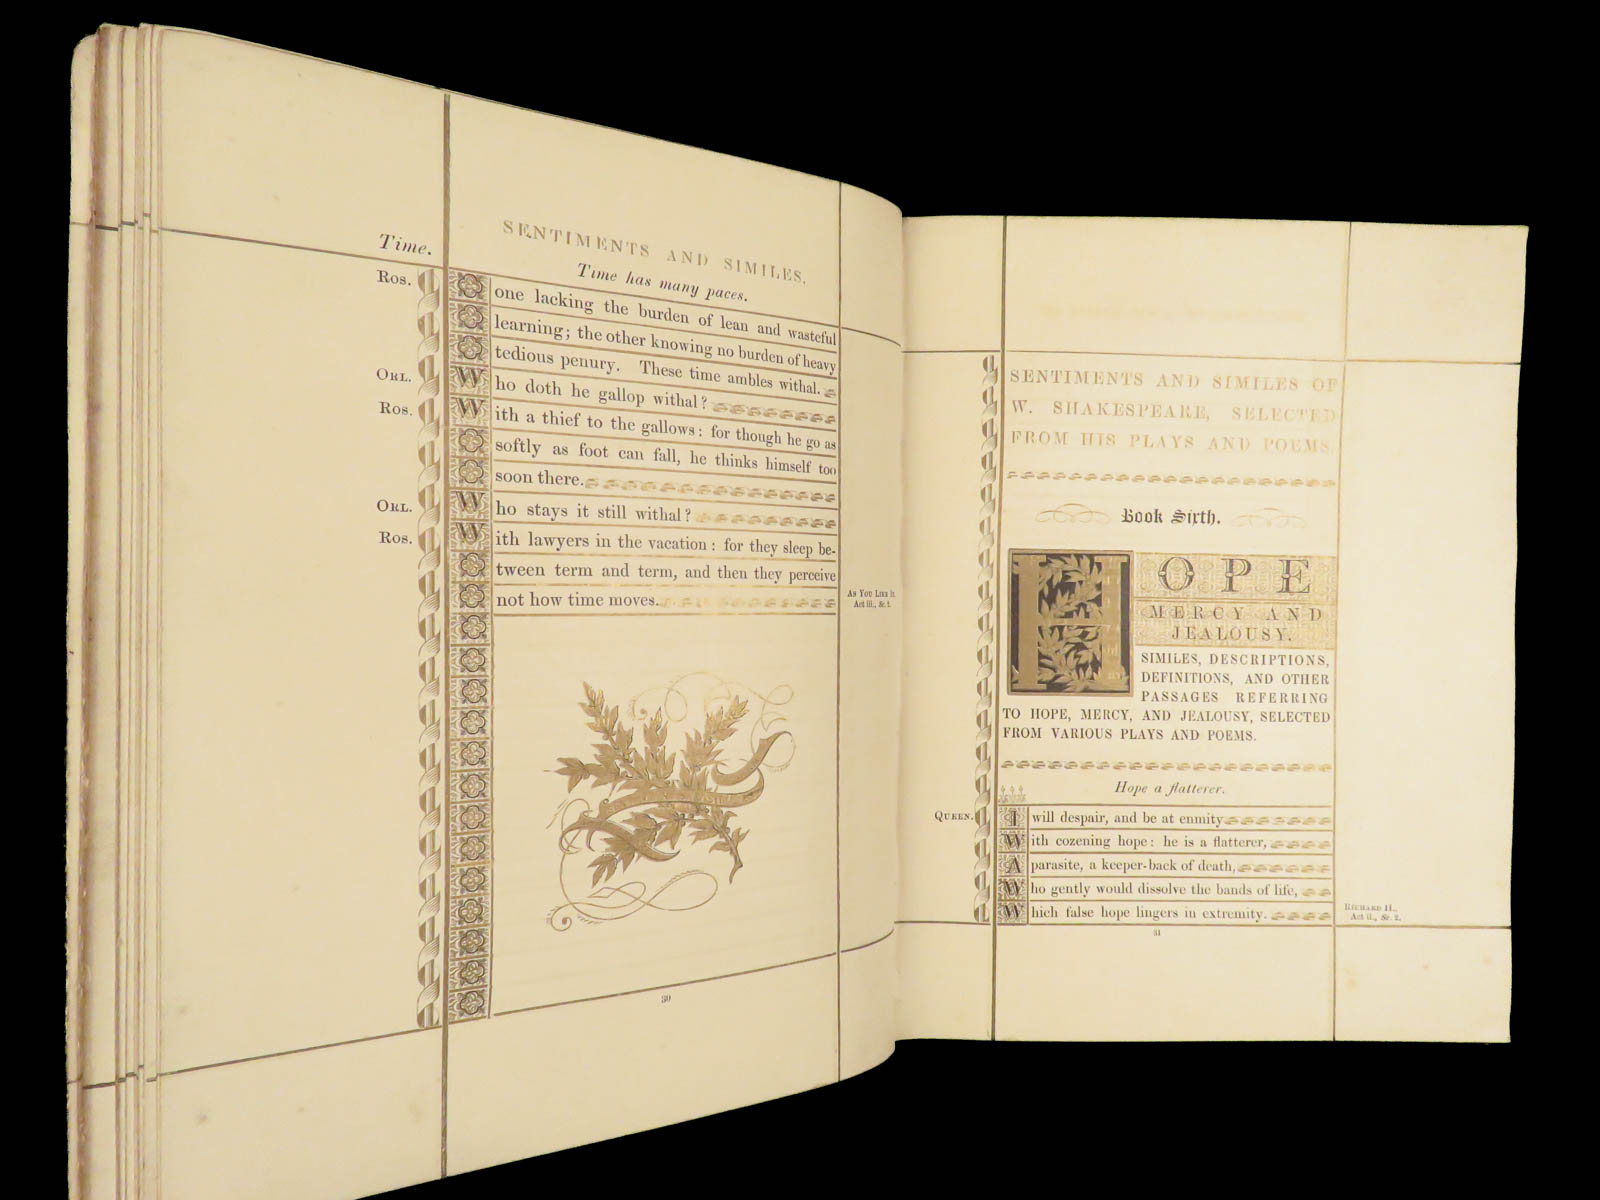 SENTIMENTS AND SIMILES.
Time.
Time has many paces.
Ros.
one lacking the burden of lean and wasteful
learning; the other knowing no burden of heavy
tedious penury. These time ambles withal.
Orl. Who doth he gallop withal?
Ros. With a thief to the gallows: for though he go as
softly as foot can fall, he thinks himself too
soon there.
Orl. Who stays it still withal?
Ros. With lawyers in the vacation: for they sleep be-
tween term and term, and then they perceive
not how time moves.
As You Like It,
Act iii., Sc. 2.
30
SENTIMENTS AND SIMILES OF
W. SHAKESPEARE, SELECTED
FROM HIS PLAYS AND POEMS.
Book Sixth.
HOPE
MERCY AND
JEALOUSY.
SIMILES, DESCRIPTIONS,
DEFINITIONS, AND OTHER
PASSAGES REFERRING
TO HOPE, MERCY, AND JEALOUSY, SELECTED
FROM VARIOUS PLAYS AND POEMS.
Hope a flatterer.
Queen. I will despair, and be at enmity
With cozening hope: he is a flatterer,
A parasite, a keeper-back of death,
Who gently would dissolve the bands of life,
Which false hope lingers in extremity.
Richard II.,
Act ii., Sc. 2.
31